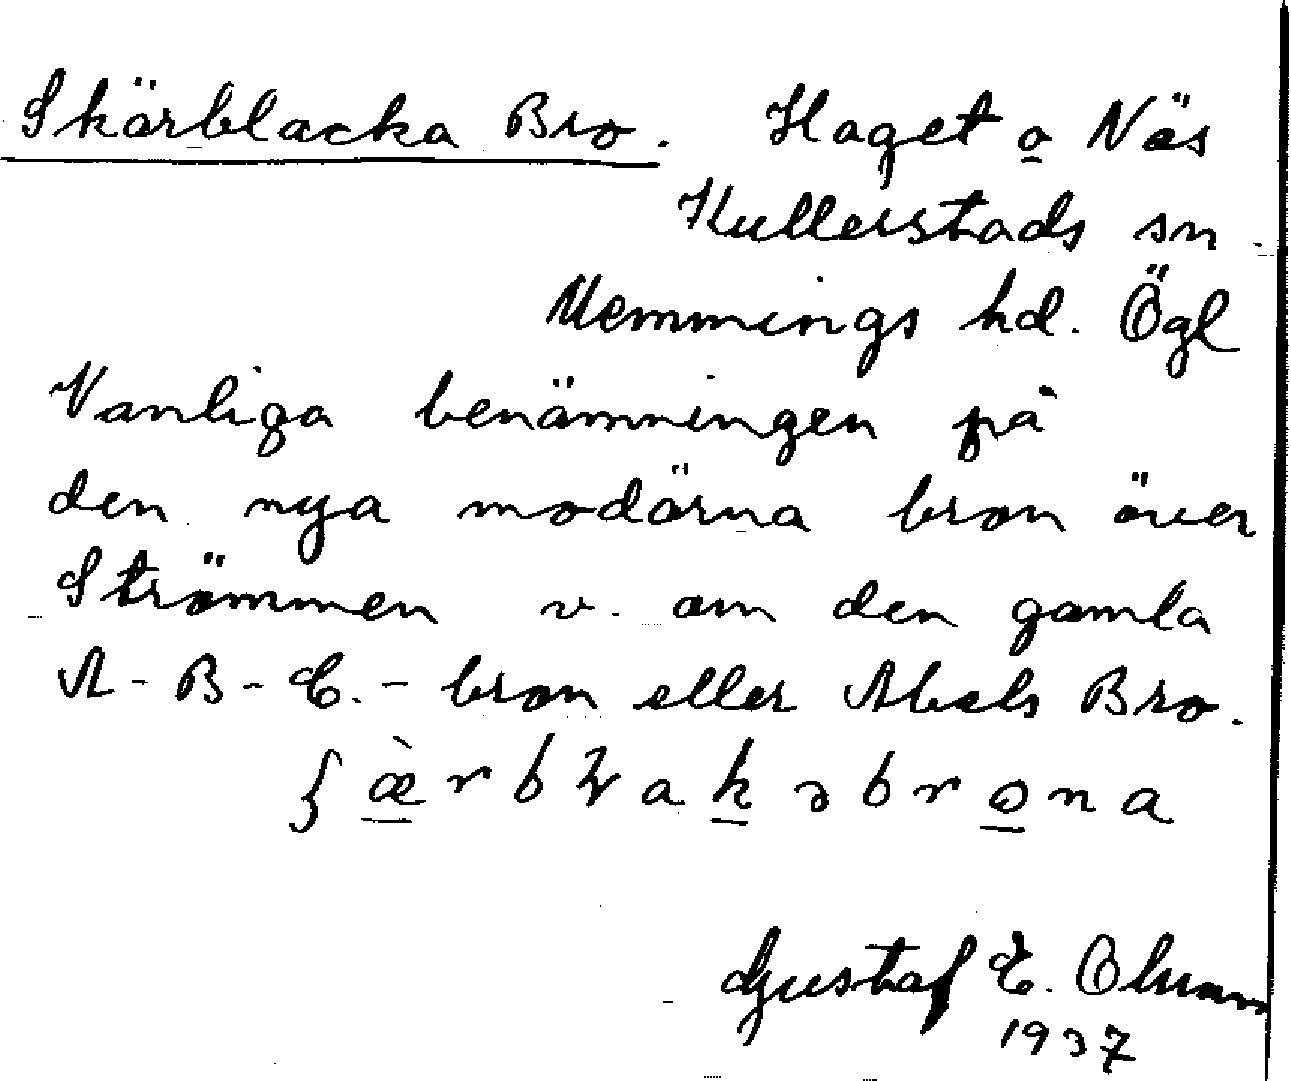 Skärblacka Bro. Haget o Näs
Kullerstads sn.
Memmings hd. Ögl
Vanliga benämningen på
den nya modärna bron över
Strömmen v. om den gamla
A-B-C.-bron eller Abels Bro.
Gustaf E.
1937